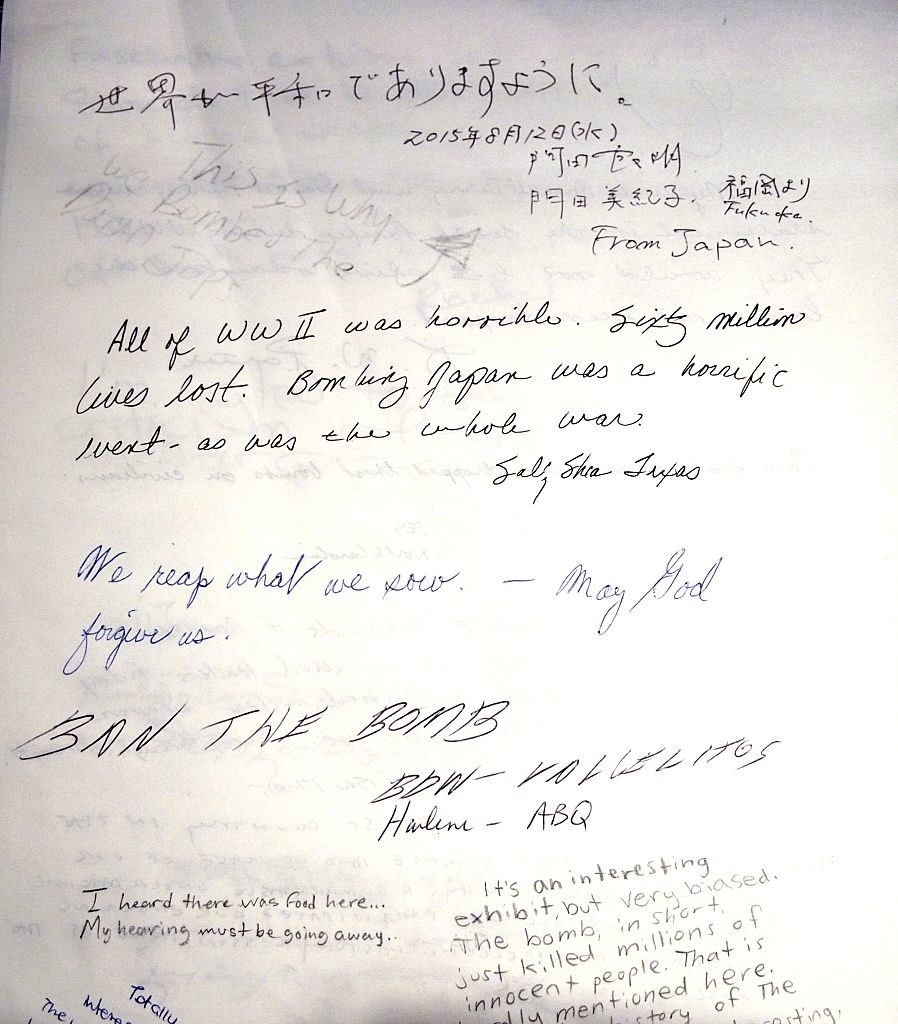 世界が平和でありますように。
2015年8月12日(水)
門田
門田 美紀子. 福岡より
Fukuoka.
From Japan.
This Is Why
We Bombed The
All of WW II was horrible. Sixty million
lives lost. Bombing Japan was a horrific
event - as was the whole war.
Sally Shea Texas
We reap what we sow. — May God
forgive us.
BAN THE BOMB
BDW - VALLECITOS
- ABQ
I heard there was food here...
My hearing must be going away...
It's an interesting
exhibit, but very biased.
The bomb, in short,
just killed millions of
innocent people. That is
mentioned here.
history of The
Totally
The